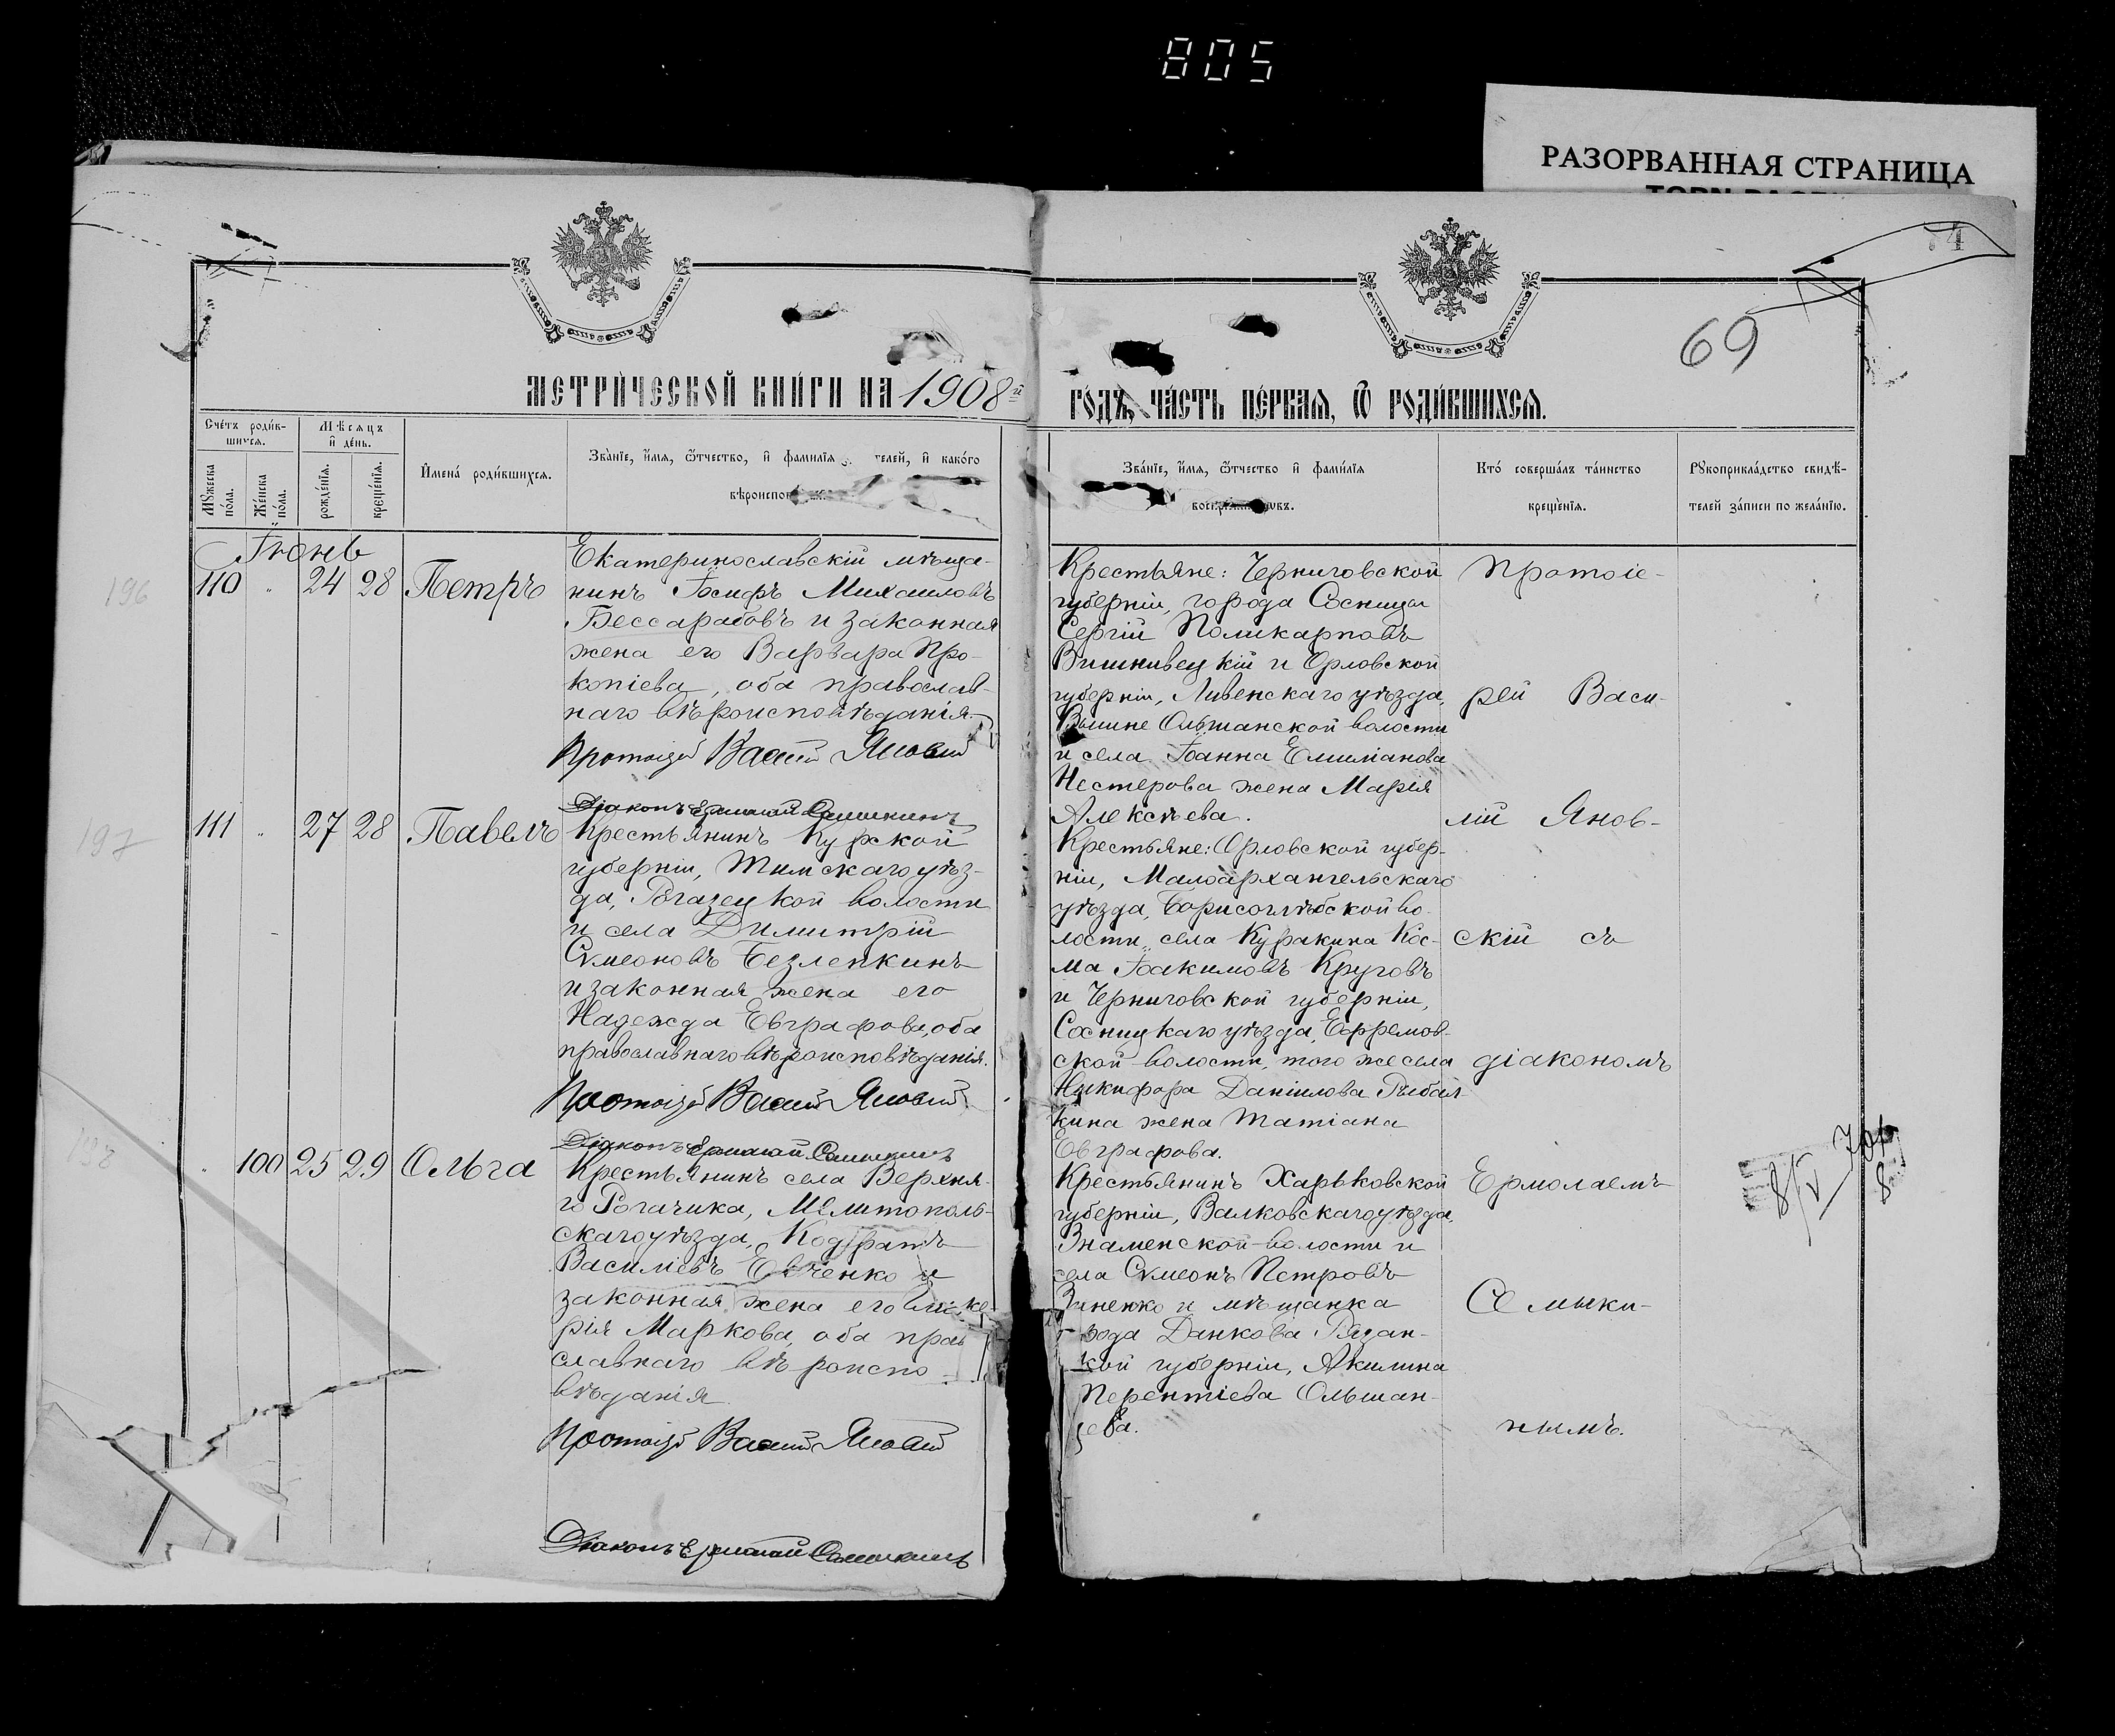 805
РАЗОРВАННАЯ СТРАНИЦА
74
69
МЕТРИ́ЧЕСКОЙ КНИ́ГИ НА 1908й
ГО́ДЪ, ЧА́СТЬ ПЕ́РВАЯ, Ѿ РОДИ́ВШИХСЯ.
Сче́тъ роди́в-
шихся.
Мꙋ́жеска по́ла.
Же́нска по́ла.
Мѣ́сяцъ и де́нь.
рожде́нїя.
креще́нїя.
И҆мена̀ роди́вшихся.
Зва́нїе, и҆́мя, ѻ҆́тчество, и҆ фами́лїя телей, и҆ како́го
вѣроиспов
Зва́нїе, и҆́мя, ѻ҆́тчество и҆ фами́лїя
Кто̀ соверша́лъ та́инство
креще́нїя.
Рꙋкоприкла́дство свидѣ́-
телей за́писи по жела́нїю.
Іюнь
196
110 " 24 28 Петръ
Екатеринославскій мѣща-
нинъ Іосифъ Михаиловъ
Бессарабовъ и законная
жена его Варвара Про-
копіева, оба православ-
наго вѣроисповѣданія.
Протоіерей Василій Яновскій
Діаконъ Ермолай Семыкинъ
Крестьяне: Черниговской
губерніи, города Сосницы
Сергій Поликарповъ
Вишнивецкій и Орловской
губерніи, Ливенскаго уѣзда,
Ольшанской волости
и села Іоанна
Нестерова жена Марія
Алексѣева.
197
111 " 27 28 Павелъ
Крестьянинъ Курской
губерніи, Тимскаго уѣз-
да, Рогазецкой волости
и села Димитрій
Сѵмеоновъ Безлепкинъ
и законная жена его
Надежда Евграфова, оба
православнаго вѣроисповѣданія.
Протоіерей Василій Яновскій
Діаконъ Ермолай Семыкинъ
Крестьяне: Орловской губер-
ніи, Малоархангельскаго
уѣзда, Борисоглѣбской во-
лости, села Куракина Кос-
ма Іоакимовъ Круговъ
и Черниговской губерніи,
Сосницкаго уѣзда, Ефремов-
ской волости, того же села
Никифора Даніилова Рыбал-
кина жена Татіана
Евграфова.
198
" 100 25 29 Ольга
Крестьянинъ села Верхня-
го Рогачика, Мелитополь-
скаго уѣзда, Кодратъ
Василіевъ Евченко и
законная жена его Глике-
рія Маркова, оба прав
славнаго вѣроиспо-
вѣданія
Протоіерей Василій Яновскій
Діаконъ Ермолай Семыкинъ
Крестьянинъ Харьковской
губерніи, Валковскаго уѣзда,
Знаменской волости и
села Сѵмеонъ Петровъ
Зиненко и мѣщанка
рода Данкова Рязан-
кой губерніи, Акилина
Терентіева Ольшан-
цева.
Протоіе-
рей Васи-
лій Янов-
скій съ
діакономъ
Ермолаемъ
Семыки-
нымъ.